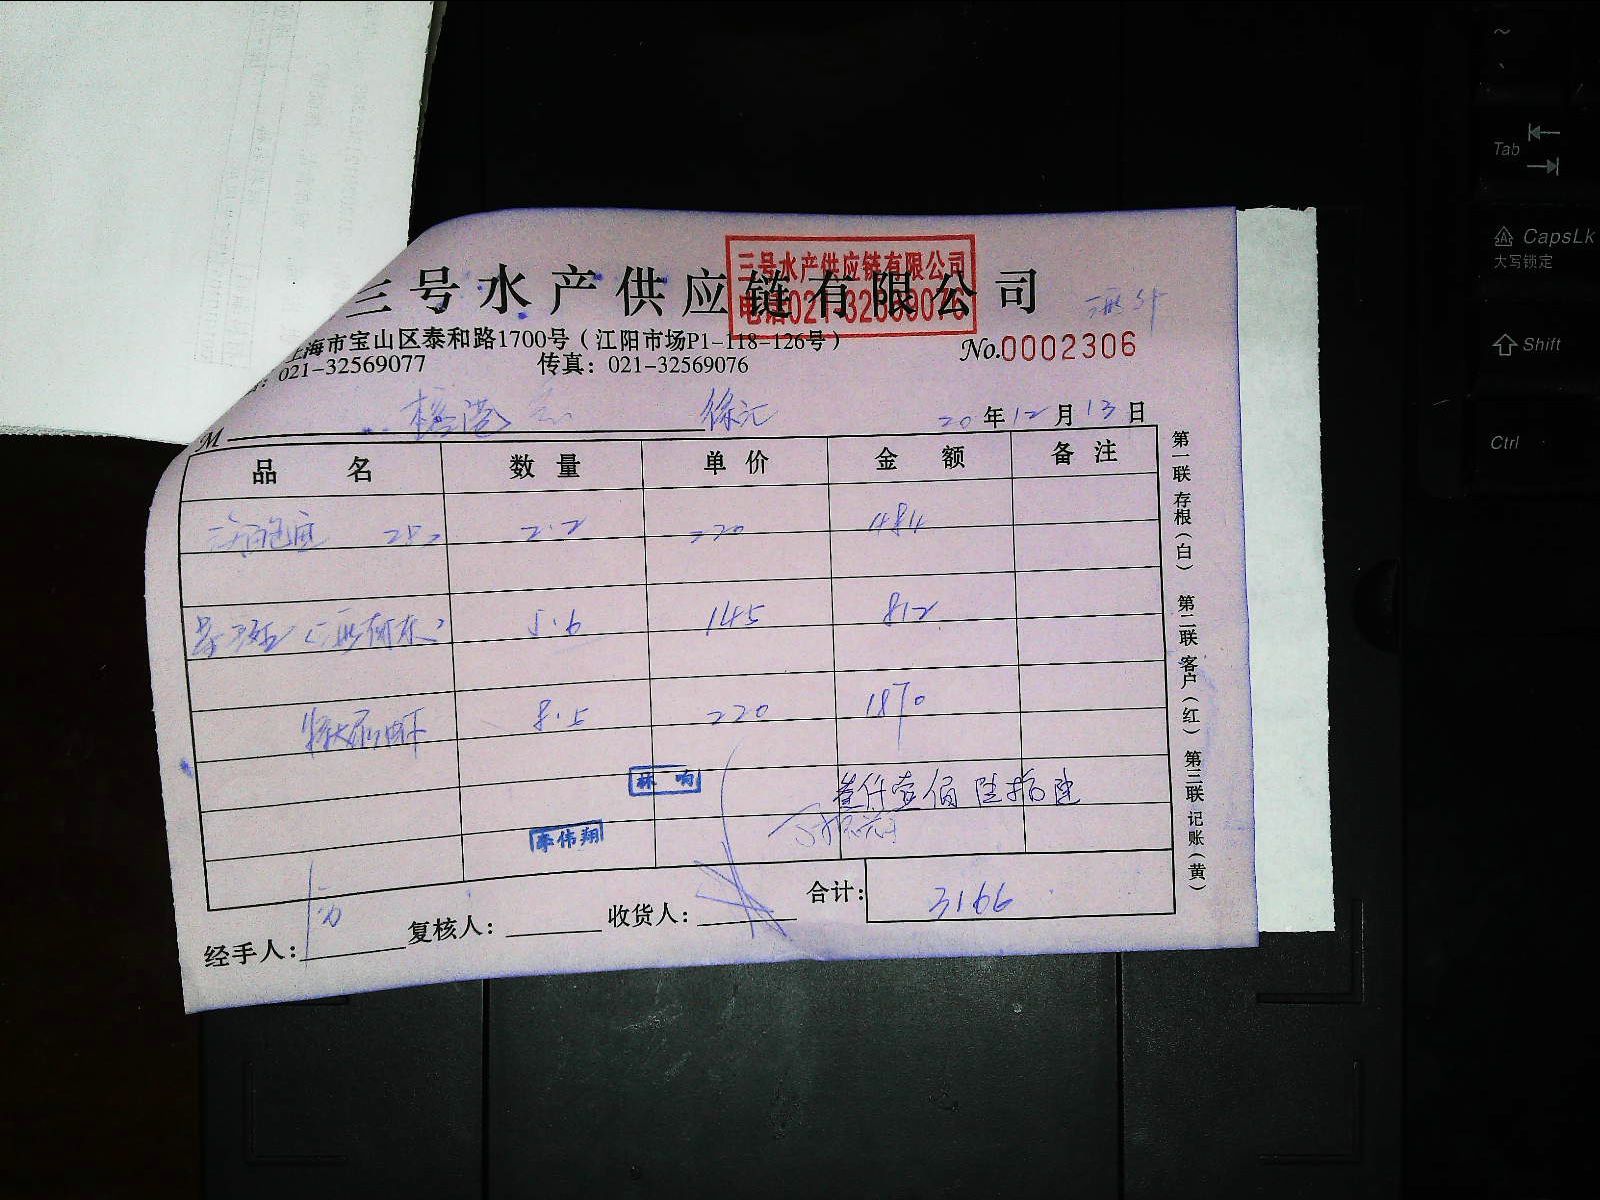 三号水产供应链有限公司
三号水产供应链有限公司
电话021-32569076
上海市宝山区泰和路1700号（江阳市场P1-118-126号）
：021-32569077 传真：021-32569076
No.0002306
M 徐汇 20年12月13日
品名 数量 单价 金额 备注
2.2 220 484
5.6 145 812
8.5 220 1870
林响
叁仟壹佰陆拾陆
李伟翔
合计： 3166
经手人： 复核人： 收货人：
第一联 存根（白） 第二联 客户（红） 第三联 记账（黄）
Tab
CapsLk
大写锁定
Shift
Ctrl